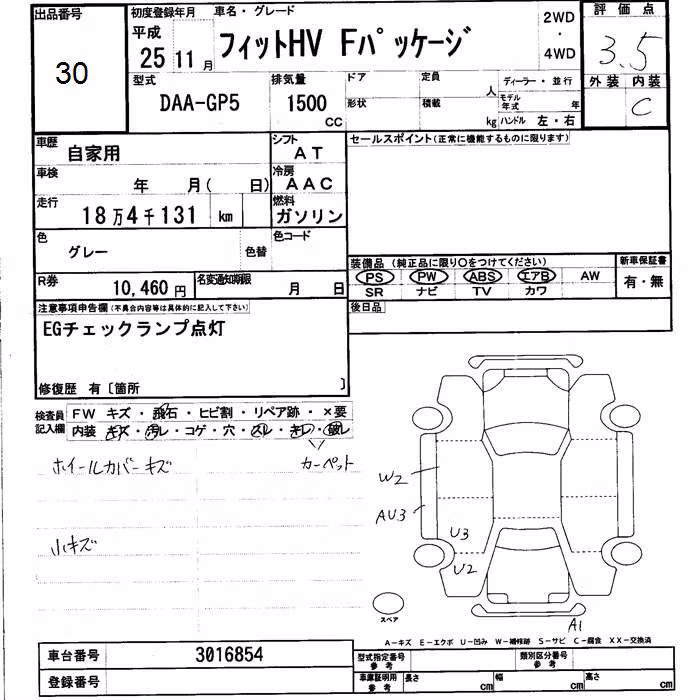 出品番号
30
初度登録年月
平成
25 11 月
車名・グレード
フィットHV Fパッケージ
2WD
・
4WD
評価点
3.5
外装 内装
C
型式
DAA-GP5
排気量
1500
CC
ドア
形状
定員
人
積載
kg
ディーラー・並行
モデル
年式
年
ハンドル 左・右
車歴
自家用
シフト
AT
車検
年 月( 日)
冷房
AAC
走行
18万4千131 km
燃料
ガソリン
色
グレー
色替
色コード
R券
10,460 円
名変通知期限
月 日
セールスポイント(正常に機能するものに限ります)
装備品(純正品に限り○をつけてください)
PS PW ABS エアB AW
SR ナビ TV カワ
新車保証書
有・無
後日品
注意事項申告欄(不具合内容等は具体的に記入して下さい)
EGチェックランプ点灯
修復歴 有〔箇所 〕
検査員
記入欄
FW キズ・飛石・ヒビ割・リペア跡・×要
内装 キズ・汚レ・コゲ・穴・スレ・キレ・破レ
ホイールカバーキズ
カーペット
小キズ
W2
AU3
U3
U2
A1
スペア
A-キズ E-エクボ U-凹み W-補修跡 S-サビ C-腐食 XX-交換済
車台番号
3016854
登録番号
型式指定番号
参考
類別区分番号
参考
車庫証明用
参考
長さ
cm
幅
cm
高さ
cm